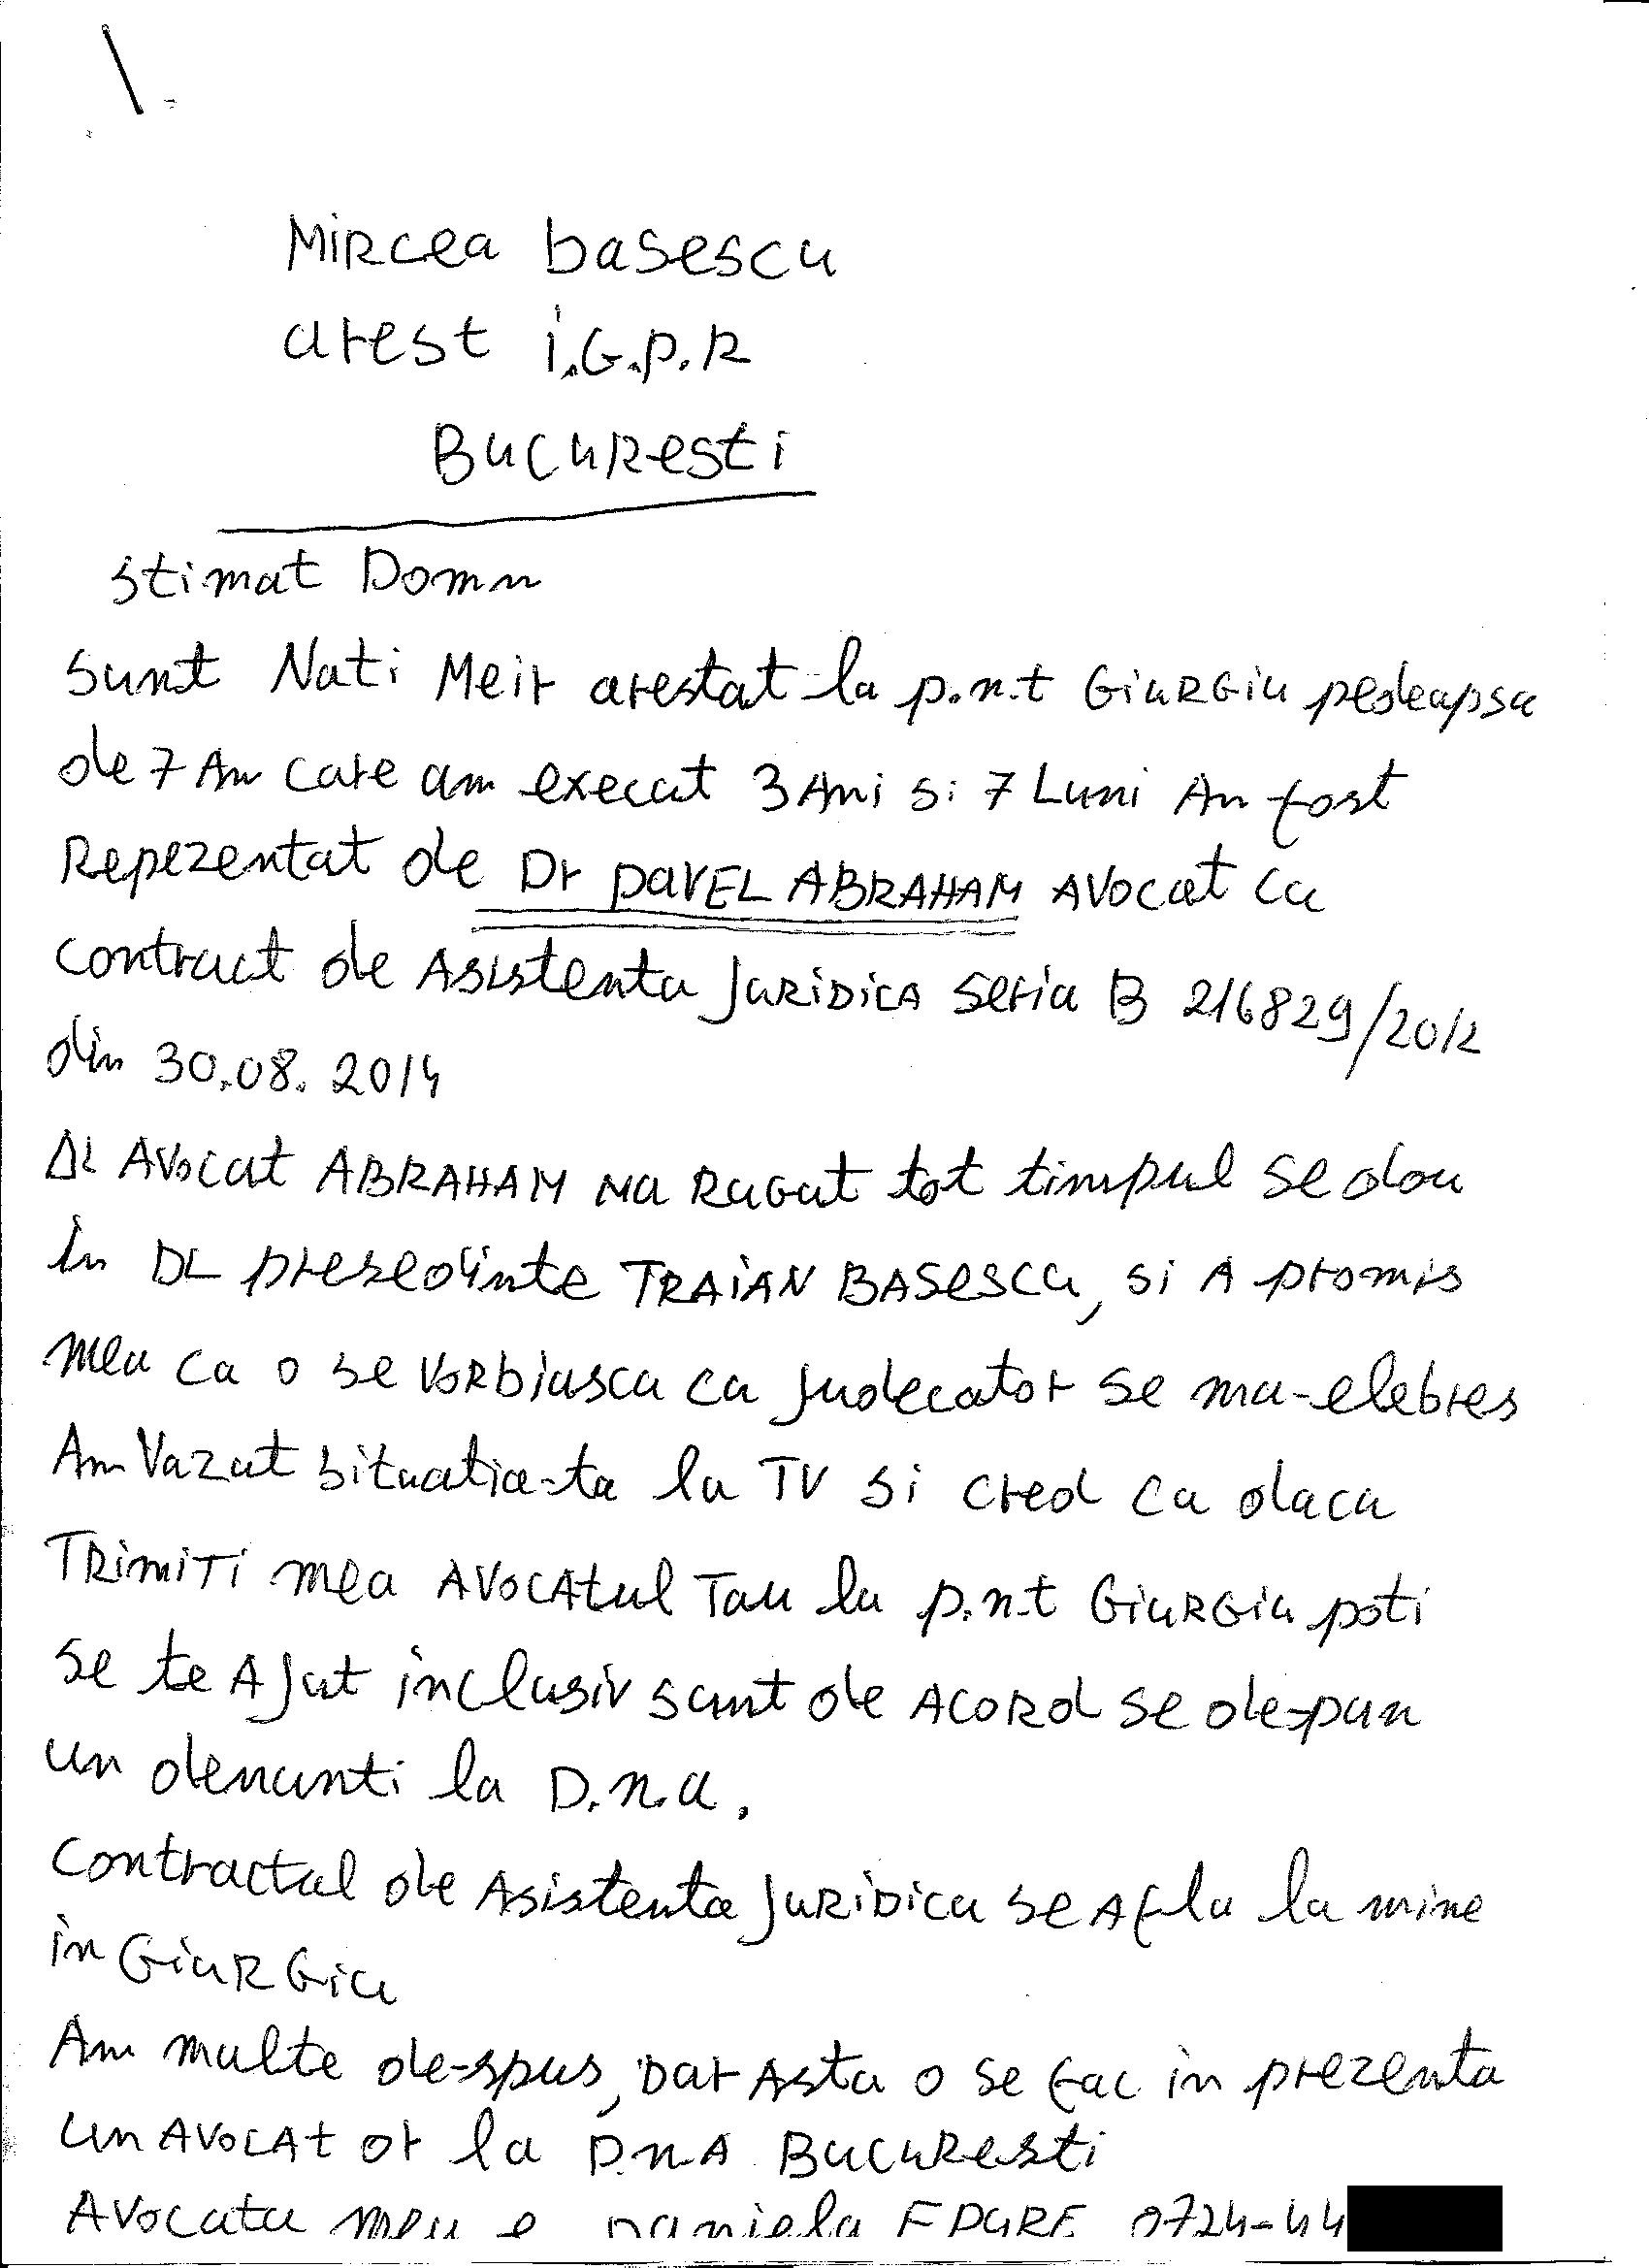 MiRcea basescu
arest i.G.p.R
BucuResti
stimat Domn
sunt Nati Meir arestat la p.n.t GiuRGiu pedeapsa
de 7 An care am execut 3 Ani si 7 Luni An fost
Repezentat de Dr paVEL ABRAHAM AVocat cu
contract de Asistenta JuRiDicA seria B 216829/2012
din 30.08.2014
DL AVocat ABRAHAM Ma RuGat tot timpul se dou
in DL presedinte TRAiAN BASescu, si A promis
meu ca o se VoRbiasca cu judecator se ma-elebres
Am Vazut situatia-ta la TV si cred ca daca
TRimiTi mea AVocAtul Tau la p.n.t GiuRGiu poti
se te AJut inclusiv sunt de ACoRd se de-pun
un denunti la D.n.a.
Contractul de Asistenta JuRiDica se Afla la mine
in GiuRGiu
Am multe de-spus, Dar Asta o se fac in prezenta
un AVoCAt or la D.n.A BucuResti
AVocata meu e Daniela EDGRE 0724-44